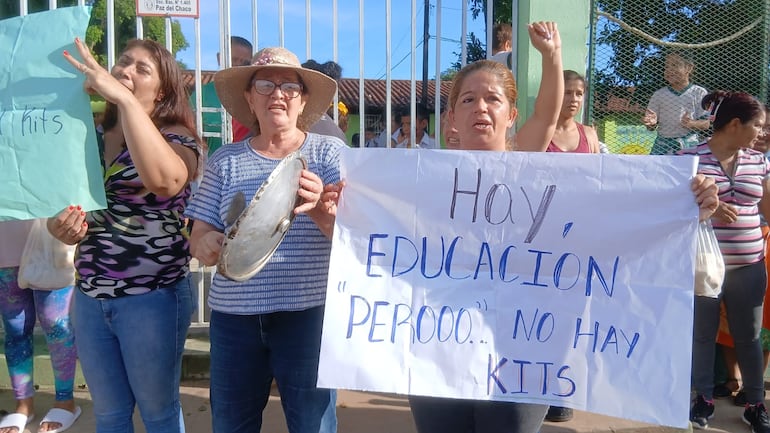 Esc. Bás. N° 1.403
Paz del Chaco
Kits
Hay,
EDUCACIÓN
"PEROOO.." NO HAY
KITS